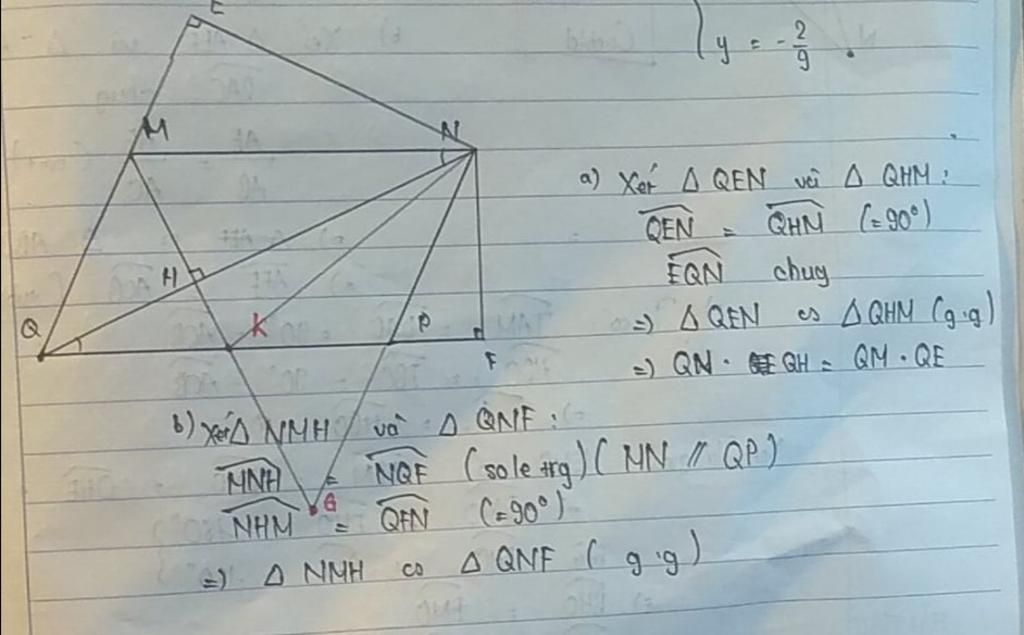 E
y = - 2/9 .
M
N
a) Xét △ QEN và △ QHM :
QEN = QHM (= 90°)
EQN chug
H
=) △ QEN ∽ △ QHM (g.g)
Q
K
P
F
=) QN . QH = QM . QE
b) Xét △ NMH và △ QNF :
MNH = NQF (so le trg) ( MN // QP )
G
NHM = QFN (= 90°)
=) △ NMH ∽ △ QNF ( g.g )